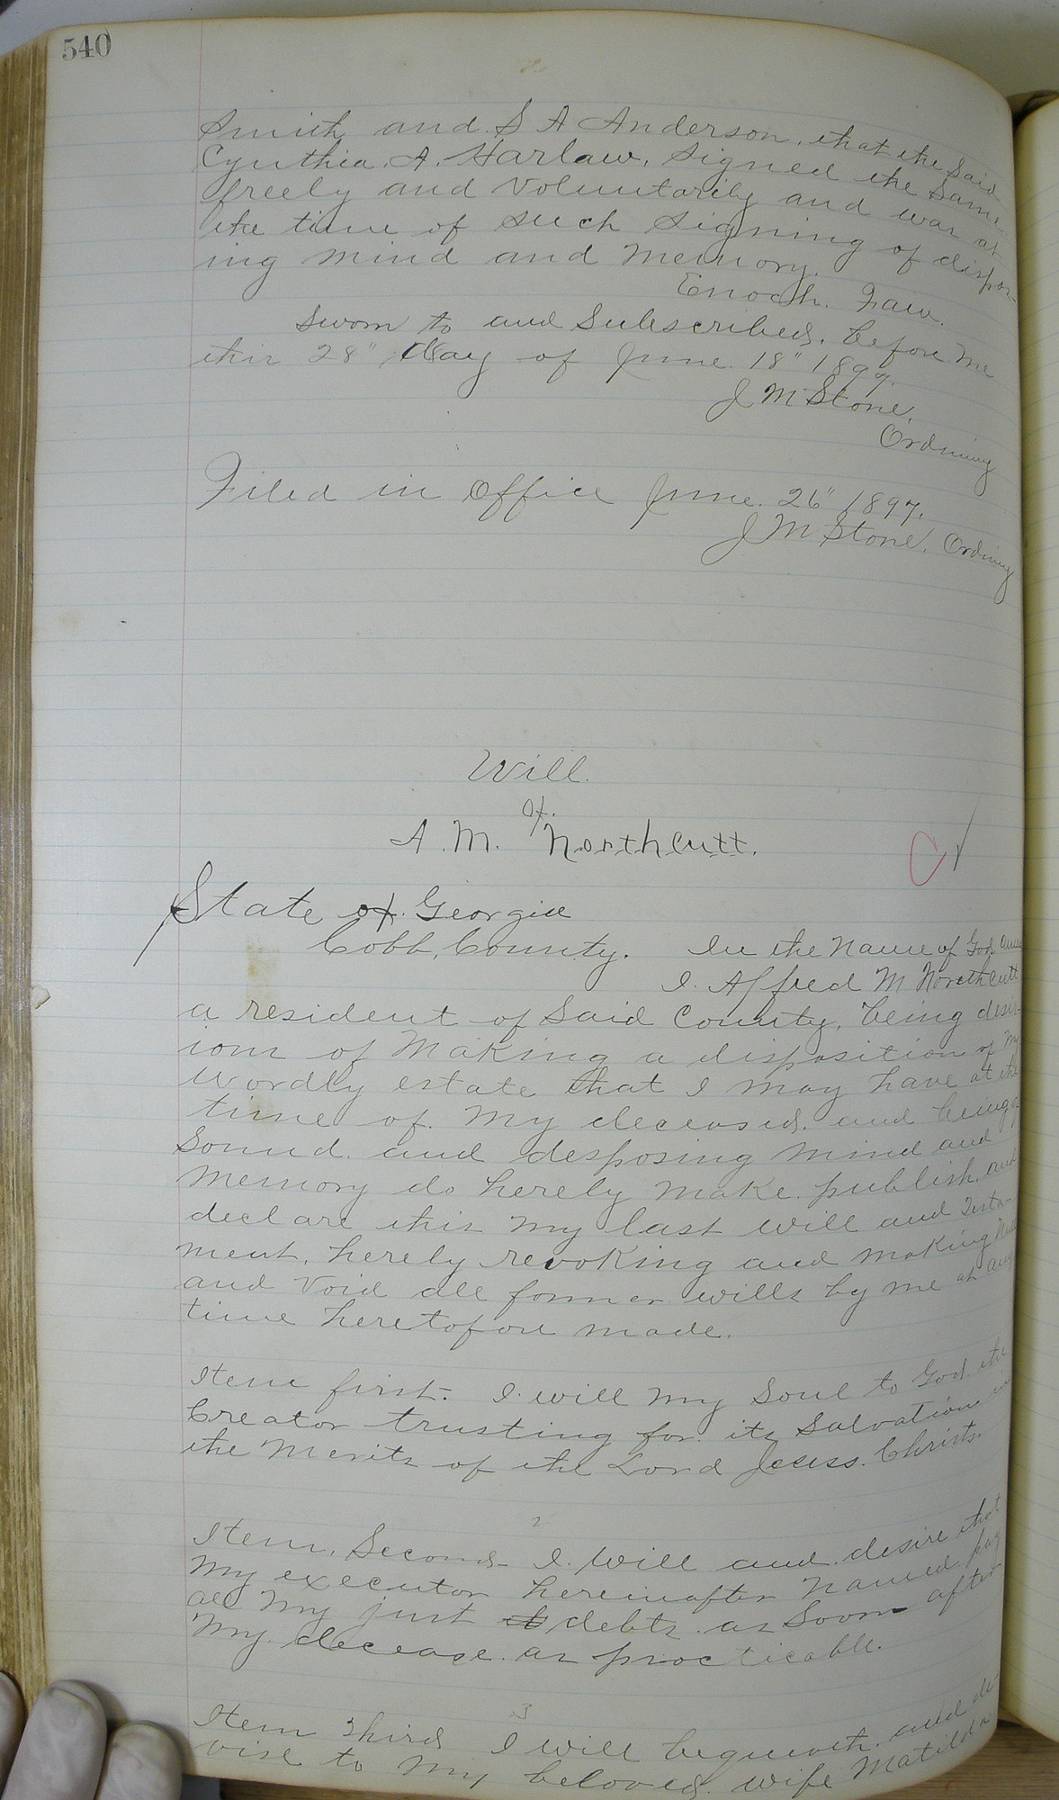 540
Smith and S A Anderson, that the Said
Cynthia. A. Harlaw. Signed the Same
freely and Voluntarily and was at
the time of such Signing of dispos-
ing mind and Memory.
Enoch. Faw.
Sworn to and Subscribed, before me
this 28" day of June 18" 1897.
J M Stone,
Ordinary
Filed in Office June. 26" 1897.
J M Stone, Ordinary
Will.
of.
A. M. Northcutt.
State of. Georgia
Cobb, County. In the Name of God, Amen
I. Alfred M Northcutt
a resident of Said County, being desir-
ious of Making a disposition of My
Wordly estate that I may have at the
time of. My deceased. and being of
Sound. and desposing Mind and
Memory do hereby make. publish, and
declare this My last will and Testa-
ment, hereby revoking and making Null
and Void all former wills by me at any
time heretofore made.
Item first- I. will my Soul to God the
Creator trusting for. its Salvation in
the Merits of the Lord Jesus. Christ.
2
Item, Second- I. Will and desire that
My executor hereinafter Named pay
all My just debts as Soon after
My. decease. as practicable.
3
Item Third I will bequeath and de-
vise to My beloved wife Matilda